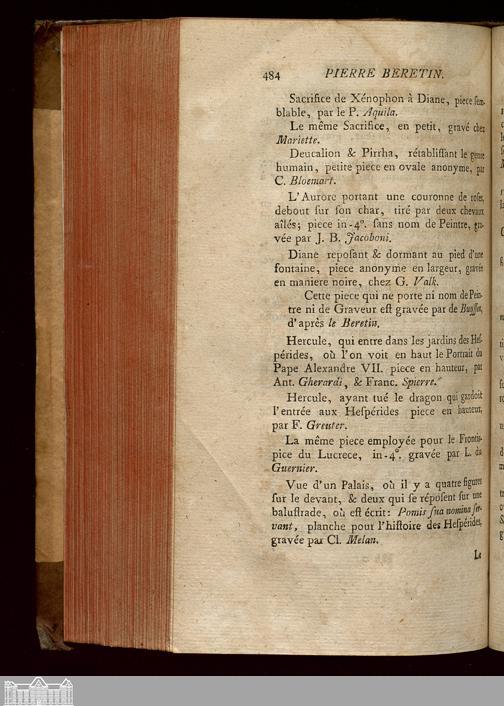 484 PIERRE BERETIN.
Sacrifice de Xénophon à Diane, piece ſem-
blable, par le P. Aquila.
Le même Sacrifice, en petit, gravé chez
Mariette.
Deucalion & Pirrha, rétabliſſant le genre
humain, petite piece en ovale anonyme, par
C. Bloemart.
L'Aurore portant une couronne de roſes,
debout ſur ſon char, tiré par deux chevaux
aîlés; piece in-4°. ſans nom de Peintre, gra-
vée par J. B. Jacoboni.
Diane repoſant & dormant au pied d'une
fontaine, piece anonyme en largeur, gravée
en maniere noire, chez G. Valk.
Cette piece qui ne porte ni nom de Pein-
tre ni de Graveur eſt gravée par de
d'après le Beretin.
Hercule, qui entre dans les jardins des Heſ-
pérides, où l'on voit en haut le Portrait du
Pape Alexandre VII. piece en hauteur, par
Ant. Gherardi, & Franc. Spierre.
Hercule, ayant tué le dragon qui gardoit
l'entrée aux Heſpérides piece en hauteur,
par F. Greuter.
La même piece employée pour le Frontiſ-
pice du Lucrece, in-4°. gravée par L. du
Guernier.
Vue d'un Palais, où il y a quatre figures
ſur le devant, & deux qui ſe répoſent ſur une
baluſtrade, où eſt écrit: Pomis ſua nomina ſer-
vant, planche pour l'hiſtoire des Heſpérides,
gravée par Cl. Melan.
Le